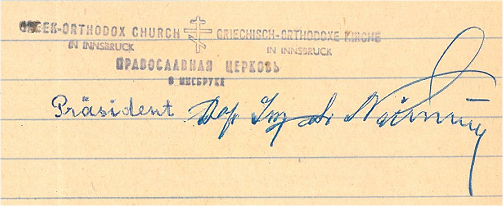 GREEK-ORTHODOX CHURCH GRIECHISCH-ORTHODOXE KIRCHE
IN INNSBRUCK IN INNSBRUCK
ПРАВОСЛАВНАЯ ЦЕРКОВЬ
В ИНСБРУКЕ
Präsident Ing